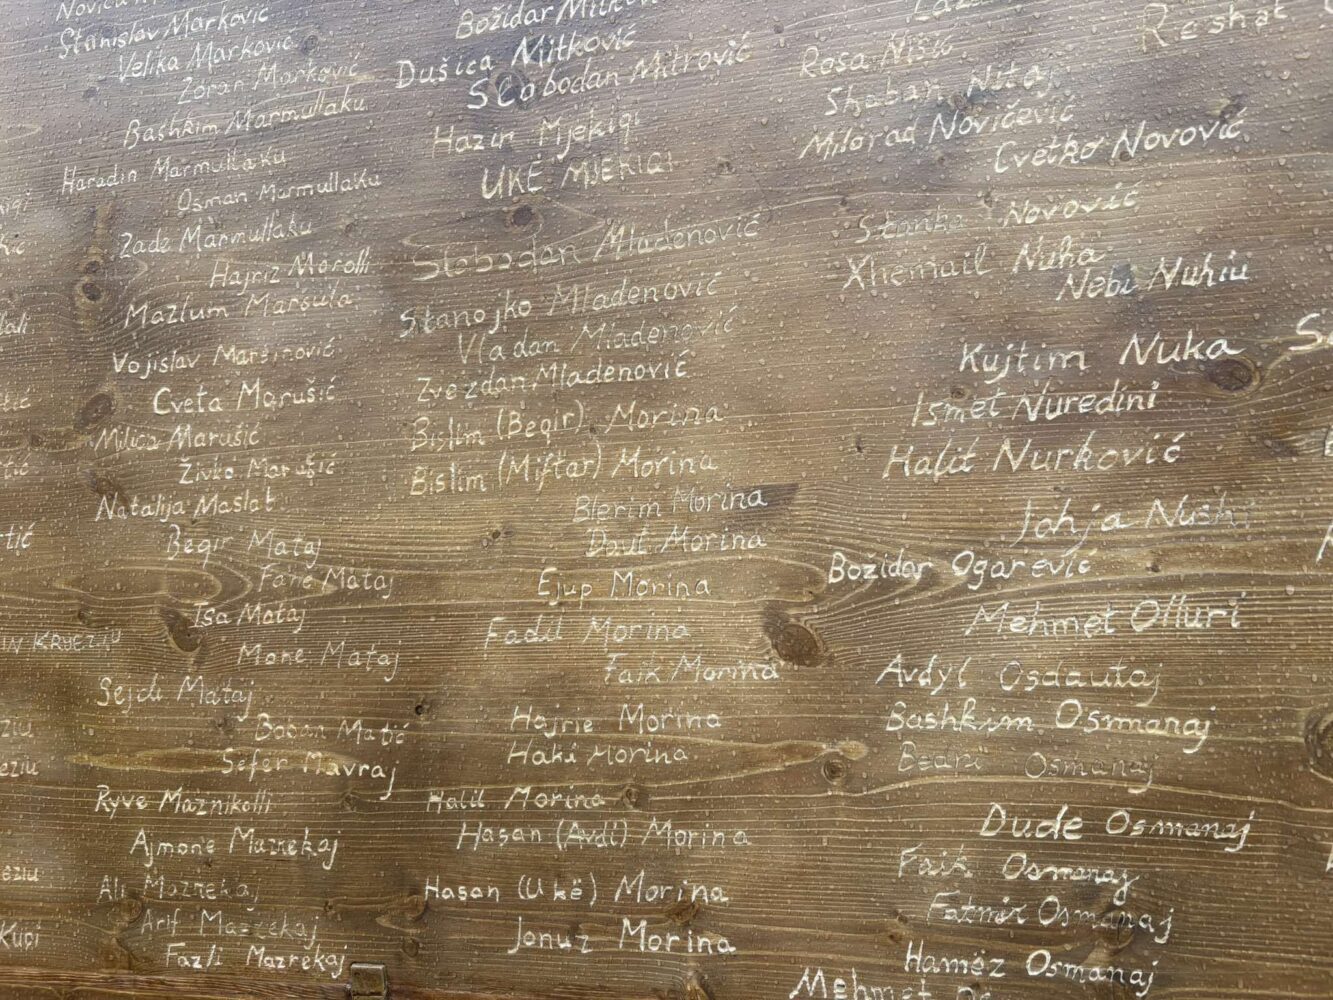 Stanislav Marković
Velika Marković
Zoran Marković
Bashkim Marmullaku
Haradin Marmullaku
Osman Marmullaku
Zade Marmullaku
Hajriz Marolli
Mazlum Marsula
Vojislav Maršinović
Cveta Marušić
Milica Marušić
Živko Marušić
Natalija Maslat
Beqir Mataj
Fane Mataj
Isa Mataj
Mone Mataj
Sejdi Mataj
Boban Matić
Sefer Mavraj
Ryve Maznikolli
Ajmone Mazrekaj
Ali Mazrekaj
Arif Mazrekaj
Fazli Mazrekaj
Božidar
Dušica Mitković
Slobodan Mitrović
Hazin Mjekiqi
UKË MJEKIQI
Slobodan Mladenović
Stanojko Mladenović
Vladan Mladenović
Zvezdan Mladenović
Bislim (Beqir) Morina
Bislim (Miftar) Morina
Blerim Morina
Daut Morina
Ejup Morina
Fadil Morina
Faik Morina
Hajrie Morina
Haki Morina
Halil Morina
Hasan (Avdi) Morina
Hasan (Ukë) Morina
Jonuz Morina
Rosa Nišić
Shaban Nitaj
Milorad Novičević
Cvetko Novović
Stanko Novović
Xhemail Nuha
Nebi Nuhiu
Kujtim Nuka
Ismet Nuredini
Halit Nurković
Johja
Božidar Ogarević
Mehmet Olluri
Avdyl Osdautaj
Bashkim Osmanaj
Bedri Osmanaj
Dude Osmanaj
Faik Osmanaj
Fatmir Osmanaj
Hamëz Osmanaj
Mehmet
Reshat
KRYEZIU
Kupi